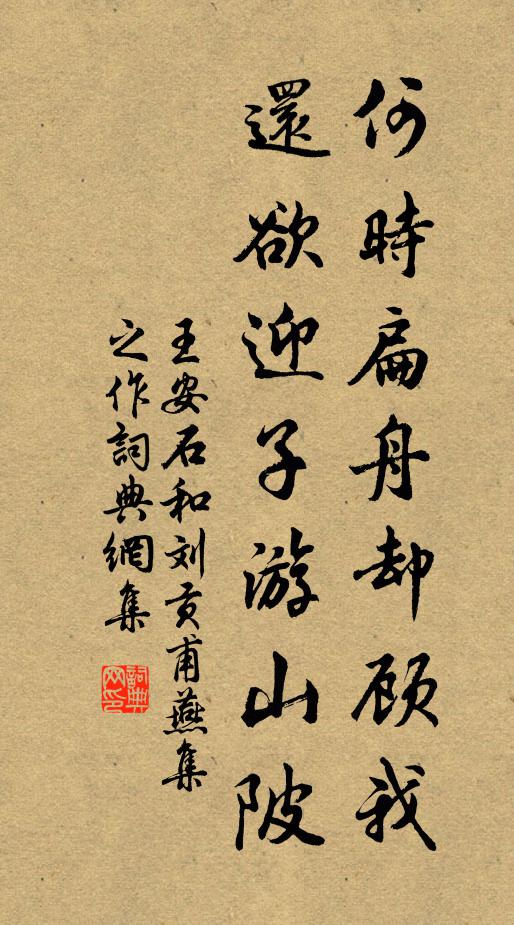 何時扁舟却顧我
還欲迎子游山陂
王安石和刘贡甫燕集
之作詞典網集
詞典
网印